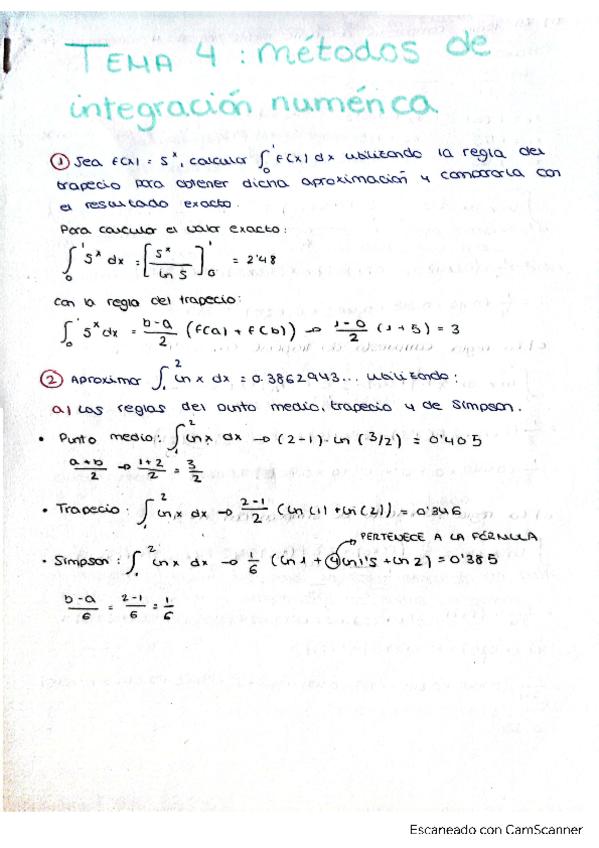 TEMA 4 : métodos de
integración numérica
① Sea f(x) = 5ˣ, calcular ∫₀¹ f(x) dx utilizando la regla del
trapecio para obtener dicha aproximación y compararla con
el resultado exacto.
Para calcular el valor exacto:
∫₀¹ 5ˣ dx = [5ˣ / ln 5]₀¹ = 2'48
con la regla del trapecio:
∫₀¹ 5ˣ dx = (b-a)/2 (f(a) + f(b)) → (1-0)/2 (1+5) = 3
② Aproximar ∫₁² ln x dx = 0.3862943... utilizando:
a) Las reglas del punto medio, trapecio y de Simpson.
• Punto medio: ∫₁² ln x dx → (2-1)·ln (3/2) = 0'405
(a+b)/2 → (1+2)/2 = 3/2
• Trapecio: ∫₁² ln x dx → (2-1)/2 (ln(1) + ln(2)) = 0'346
PERTENECE A LA FÓRMULA
• Simpson: ∫₁² ln x dx → 1/6 (ln 1 + 4 ln 1'5 + ln 2) = 0'385
(b-a)/6 = (2-1)/6 = 1/6
Escaneado con CamScanner